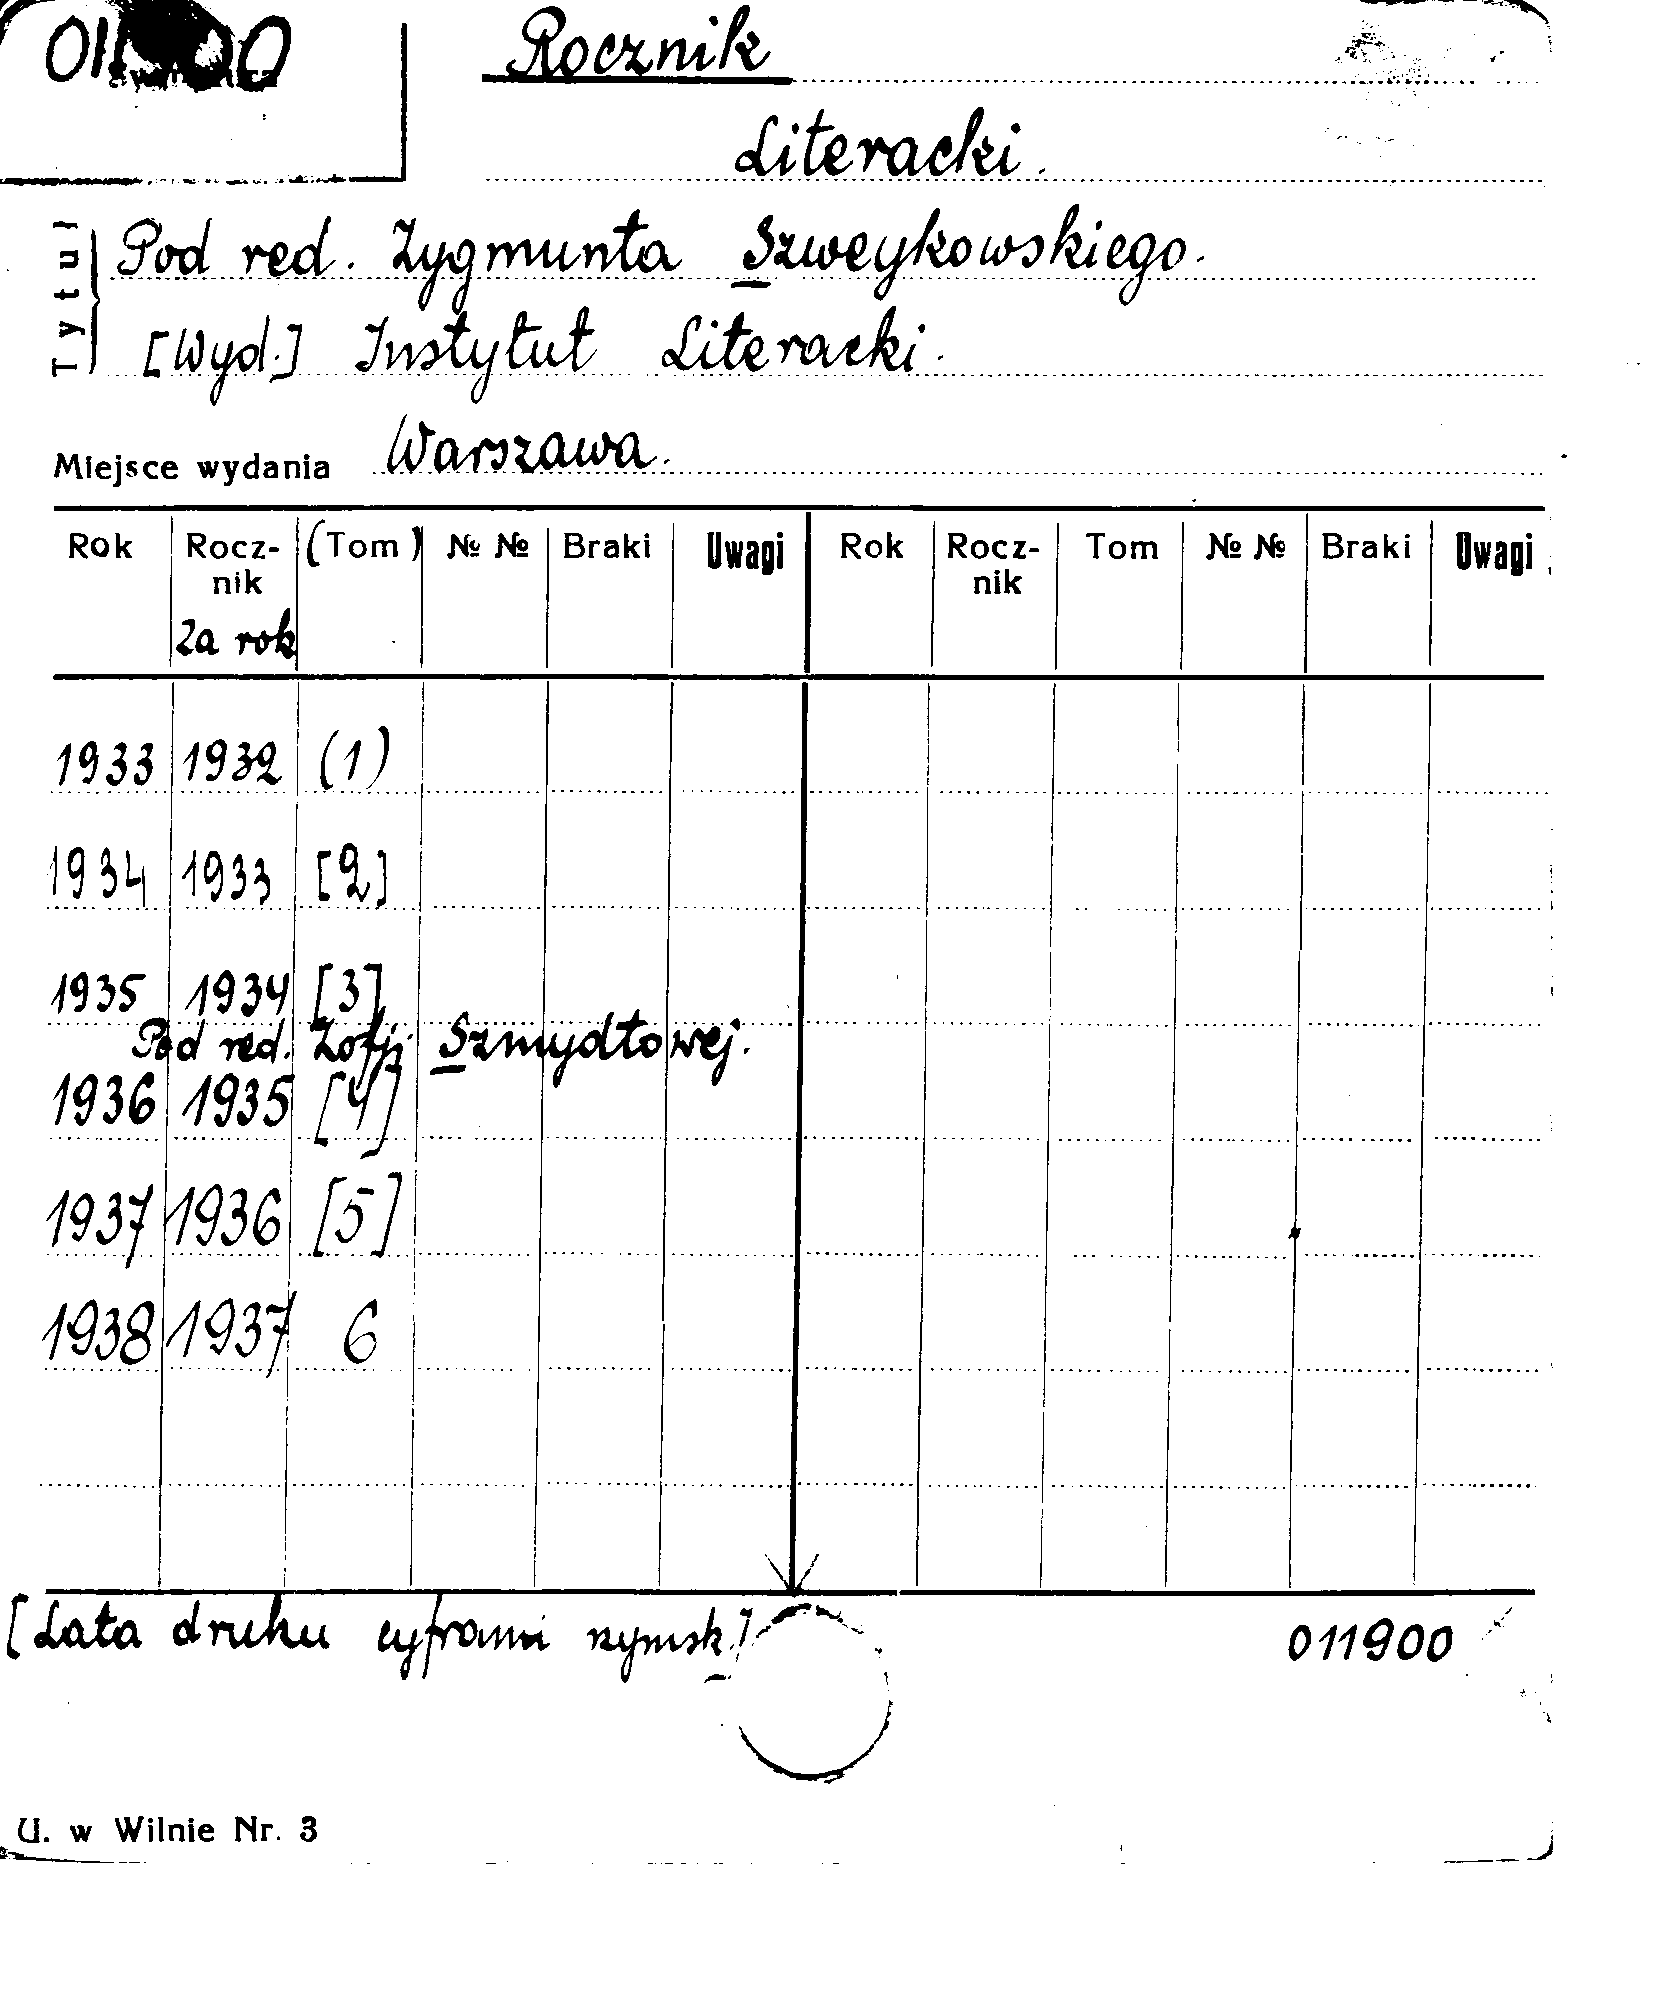 Rocznik
Literacki.
Tytuł
Pod red. Zygmunta Szweykowskiego.
[Wyd.] Instytut Literacki.
Miejsce wydania Warszawa.
Rok Rocz-nik za rok (Tom) № № Braki Uwagi Rok Rocz-nik Tom № № Braki Uwagi
1933 1932 (1)
1934 1933 [2]
1935 1934 [3]
Pod red. Zofji Szmydtowej.
1936 1935 [4]
1937 1936 [5]
1938 1937 6
[Lata druku cyframi rzymsk.]
011900
U. w Wilnie Nr. 3